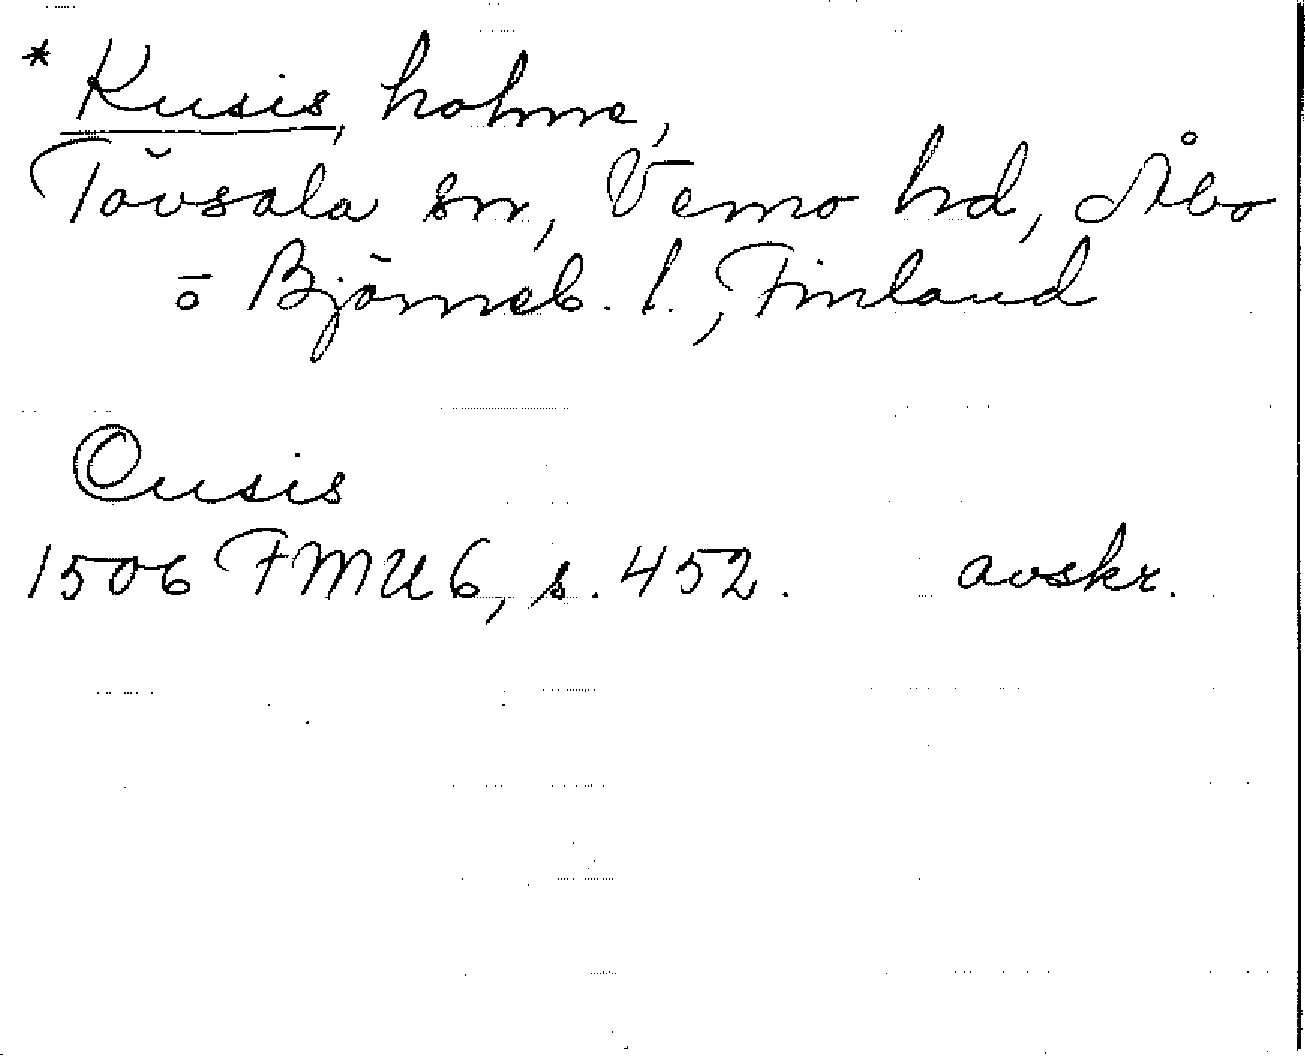 * Kusis, holme,
Tövsala sn, Vemo hd, Åbo
o Björneb. l., Finland
Cusis
1506 FMU 6, s. 452. avskr.